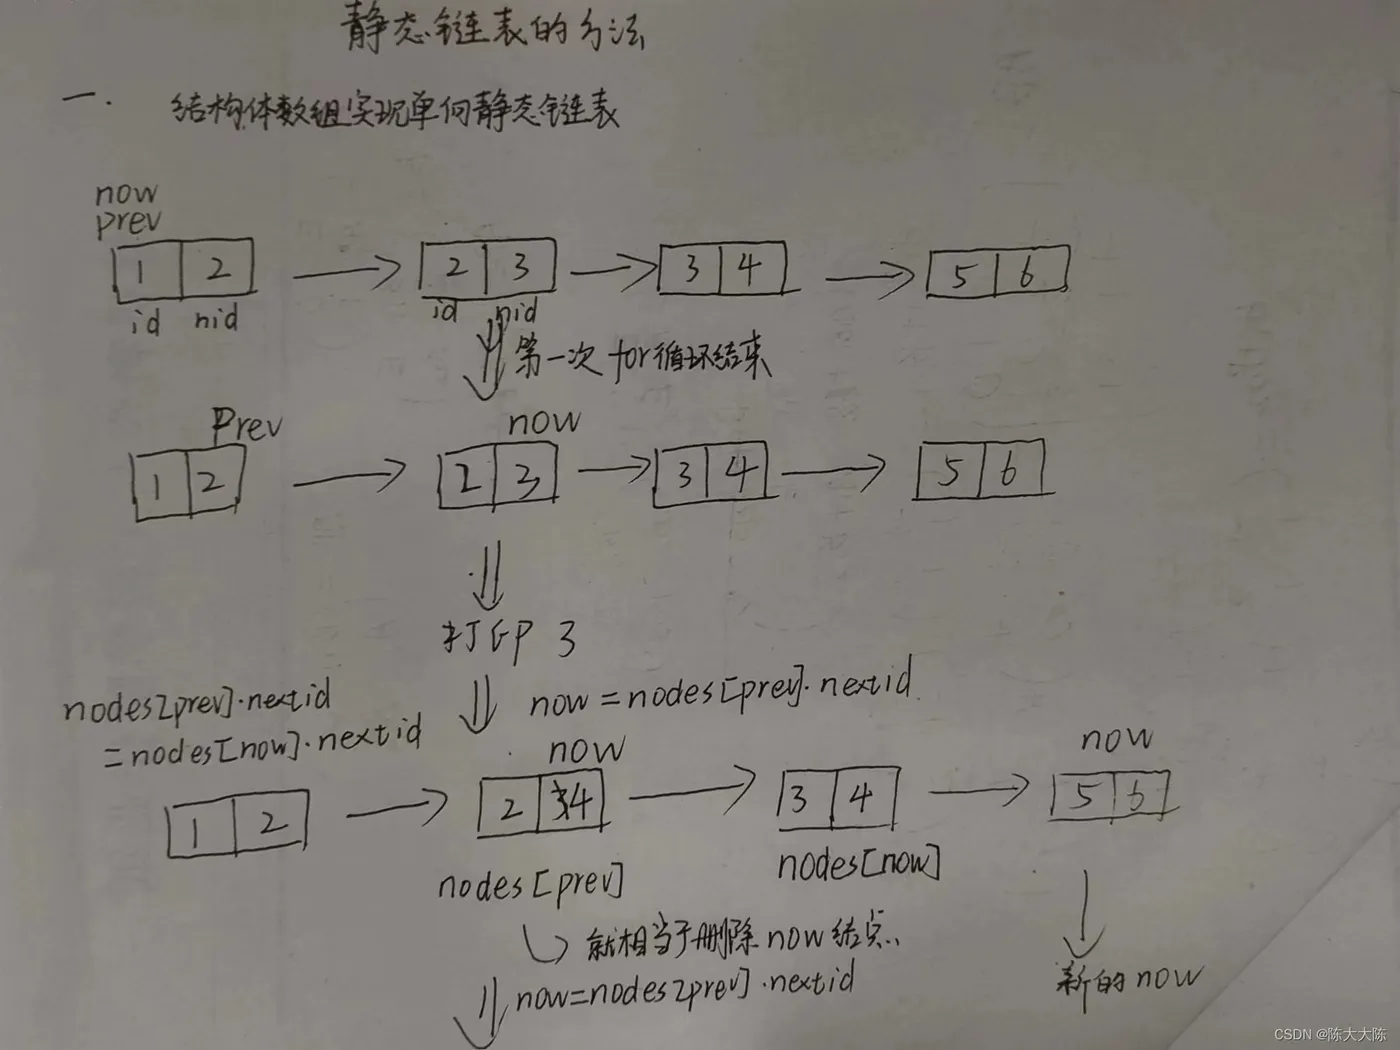 静态链表的方法
一. 结构体数组实现单向静态链表
now
prev
1 2 2 3 3 4 5 6
id nid id nid
第一次 for循环结束
Prev now
1 2 2 3 3 4 5 6
打印 3
nodes[prev].nextid
=nodes[now].nextid
now=nodes[prev].nextid
now now
1 2 2 34 3 4 5 6
nodes[prev] nodes[now]
就相当于删除now结点
新的now
now=nodes[prev].nextid
CSDN @陈大大陈